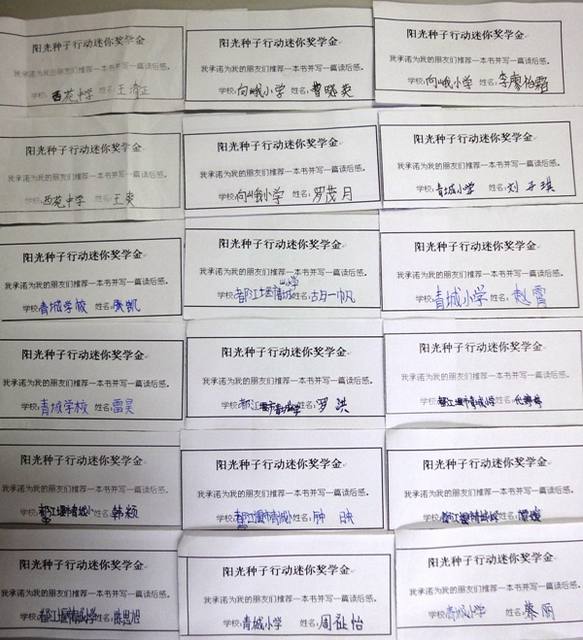 阳光种子行动迷你奖学金
我承诺为我的朋友们推荐一本书并写一篇读后感。
学校:西苑中学 姓名:王
阳光种子行动迷你奖学金
我承诺为我的朋友们推荐一本书并写一篇读后感。
学校:向峨小学 姓名:曹晓奕
阳光种子行动迷你奖学金
我承诺为我的朋友们推荐一本书并写一篇读后感。
学校:向峨小学 姓名:李廖怡霜
阳光种子行动迷你奖学金
我承诺为我的朋友们推荐一本书并写一篇读后感。
学校:西苑中学 姓名:王爽
阳光种子行动迷你奖学金
我承诺为我的朋友们推荐一本书并写一篇读后感。
学校:向峨小学 姓名:罗茂月
阳光种子行动迷你奖学金
我承诺为我的朋友们推荐一本书并写一篇读后感。
学校:青城小学 姓名:刘子琪
阳光种子行动迷你奖学金
我承诺为我的朋友们推荐一本书并写一篇读后感。
学校:青城学校 姓名:凯
阳光种子行动迷你奖学金
我承诺为我的朋友们推荐一本书并写一篇读后感。
学校:都江堰青城小学 姓名:古一帆
阳光种子行动迷你奖学金
我承诺为我的朋友们推荐一本书并写一篇读后感。
学校:青城小学 姓名:赵霄
阳光种子行动迷你奖学金
我承诺为我的朋友们推荐一本书并写一篇读后感。
学校:青城学校 姓名:雷昊
阳光种子行动迷你奖学金
我承诺为我的朋友们推荐一本书并写一篇读后感。
学校:都江堰市青城小学 姓名:罗洪
阳光种子行动迷你奖学金
我承诺为我的朋友们推荐一本书并写一篇读后感。
学校:都江堰市青城小学 姓名:
阳光种子行动迷你奖学金
我承诺为我的朋友们推荐一本书并写一篇读后感。
学校:都江堰市青城小学 姓名:韩颖
阳光种子行动迷你奖学金
我承诺为我的朋友们推荐一本书并写一篇读后感。
学校:都江堰市青城小学 姓名:钟映
阳光种子行动迷你奖学金
我承诺为我的朋友们推荐一本书并写一篇读后感。
学校:都江堰市青城小学 姓名:
阳光种子行动迷你奖学金
我承诺为我的朋友们推荐一本书并写一篇读后感。
学校:都江堰市青城小学 姓名:陈思旭
阳光种子行动迷你奖学金
我承诺为我的朋友们推荐一本书并写一篇读后感。
学校:青城小学 姓名:周祉怡
阳光种子行动迷你奖学金
我承诺为我的朋友们推荐一本书并写一篇读后感。
学校:青城小学 姓名:蔡丽